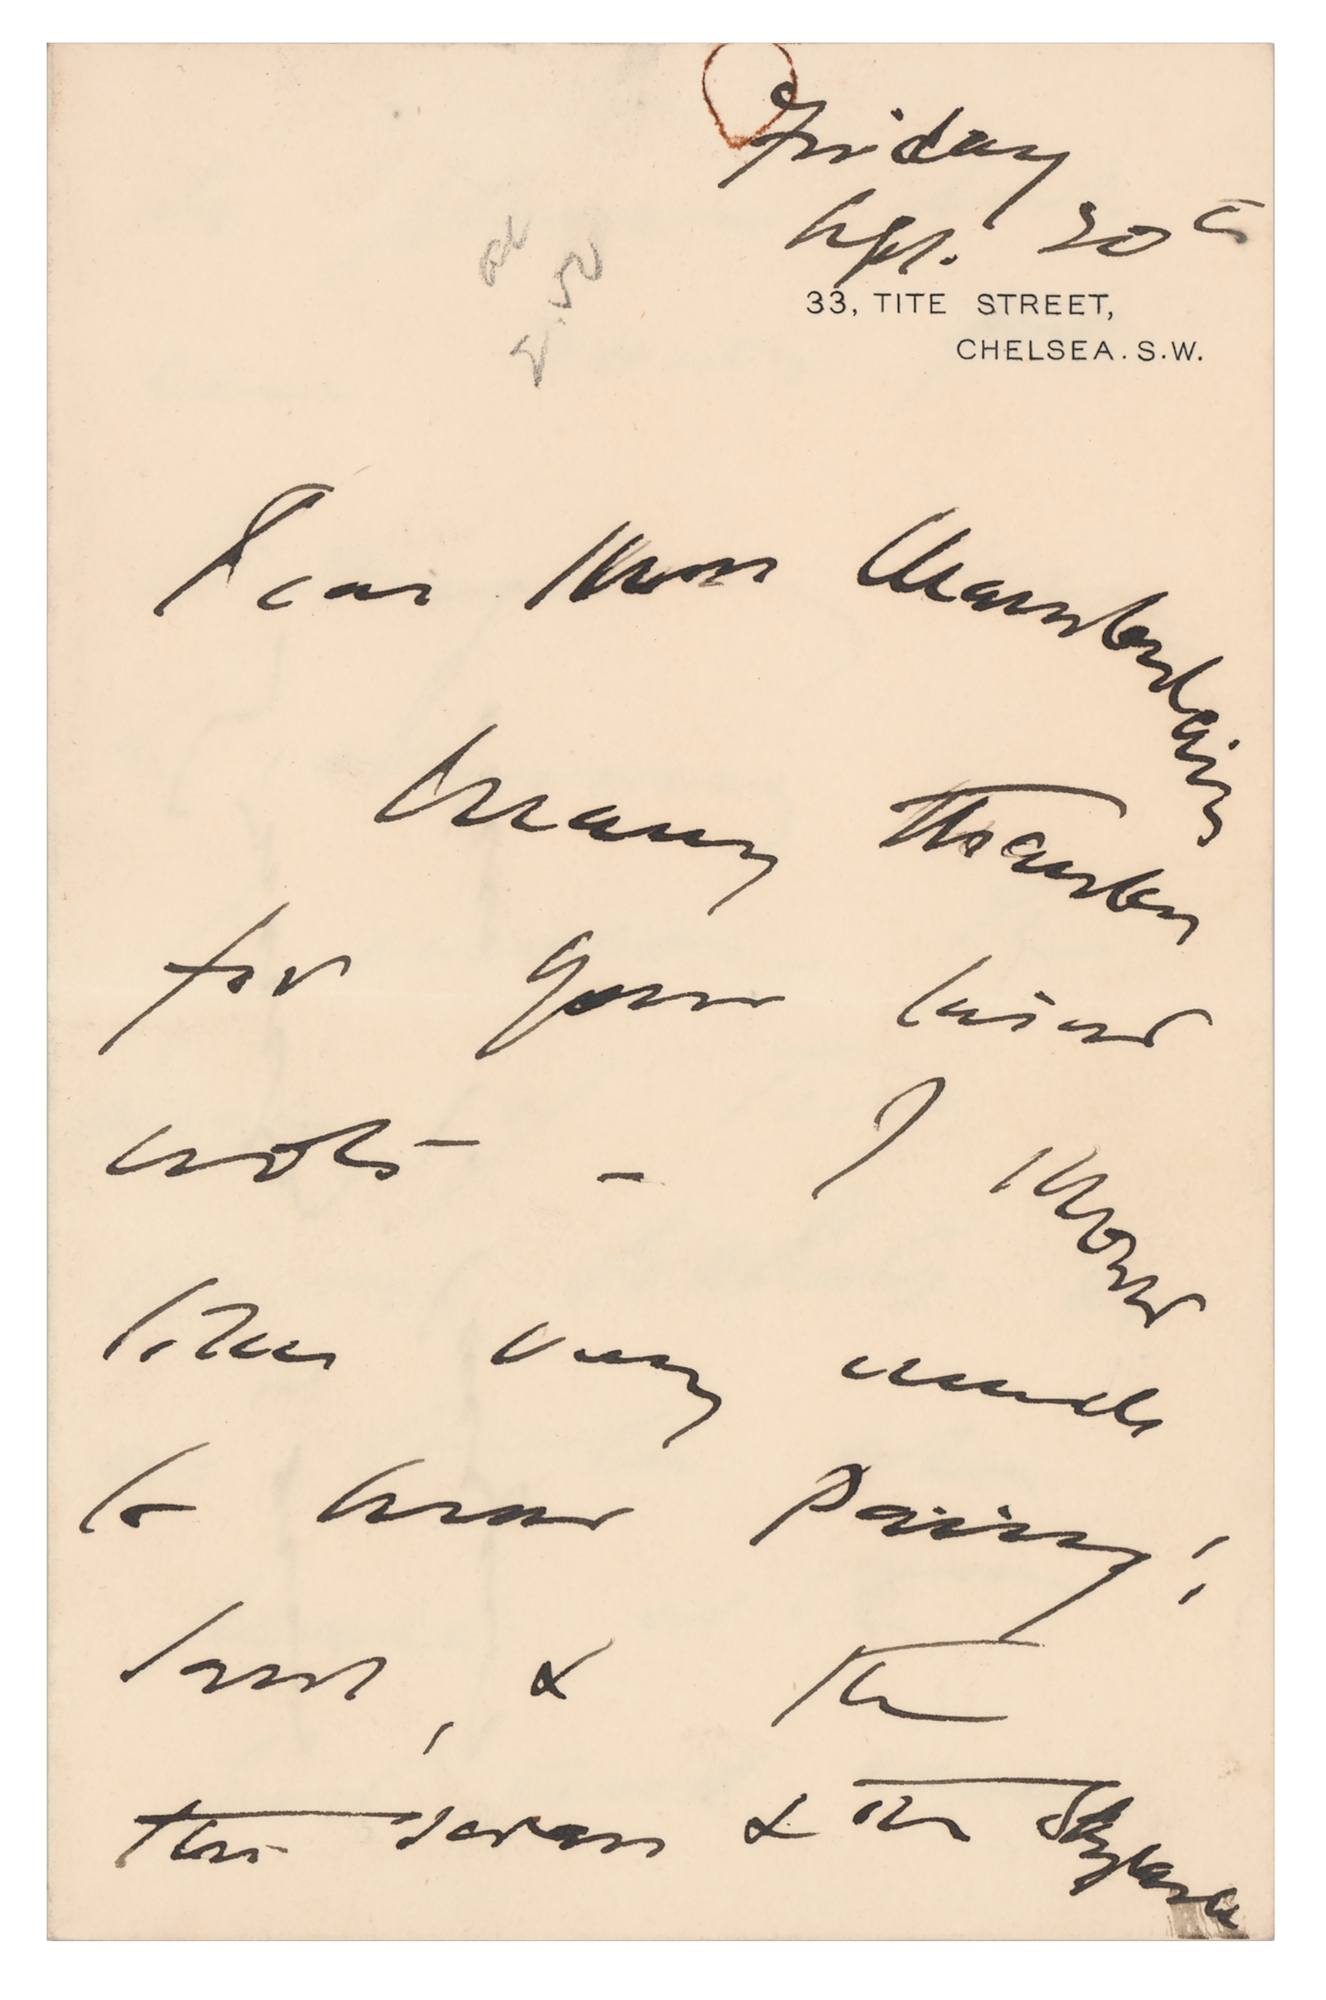 Friday
Sept. 20th
33, TITE STREET,
CHELSEA. S.W.
Dear Miss Chamberlain
Many thanks
for your kind
note - I should
like very much
to know
last, & the
the & the